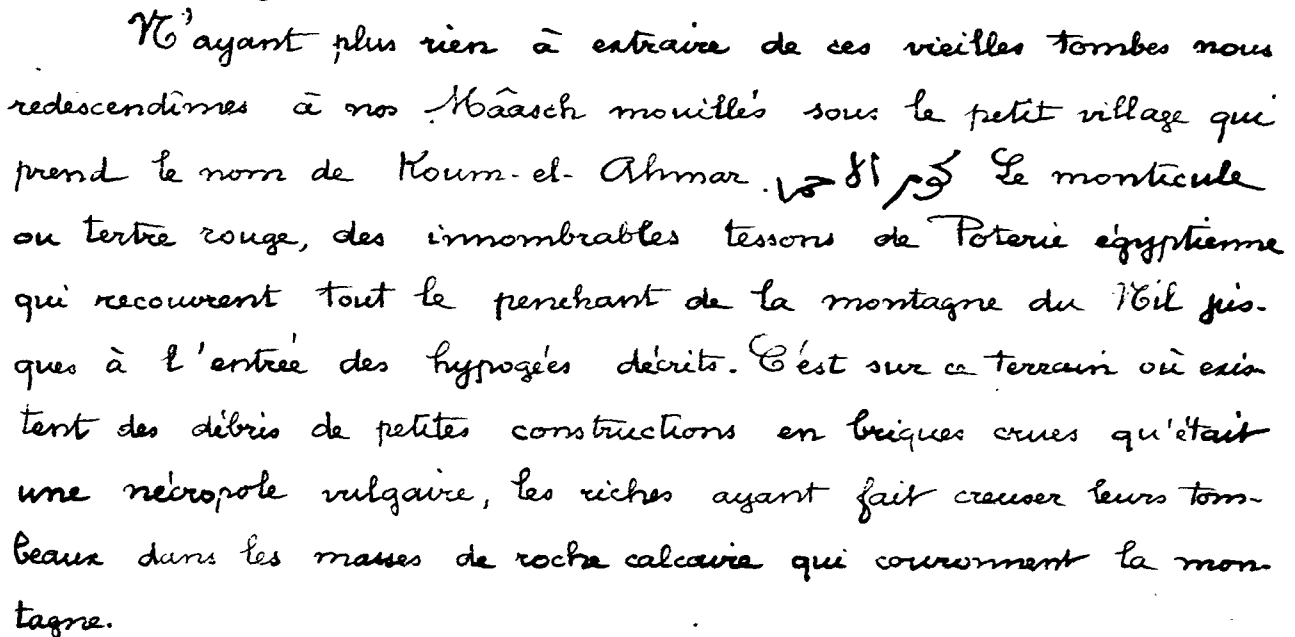 N'ayant plus rien à extraire de ces vieilles tombes nous
redescendîmes à nos Mâasch mouillés sous le petit village qui
prend le nom de Koum-el-Ahmar كوم الاحمر Le monticule
ou tertre rouge, des innombrables tessons de Poterie égyptienne
qui recouvrent tout le penchant de la montagne du Nil jus-
ques à l'entrée des hypogées décrits. C'est sur ce terrain où exis-
tent des débris de petites constructions en briques crues qu'était
une nécropole vulgaire, les riches ayant fait creuser leurs tom-
beaux dans les masses de roche calcaire qui couronnent la mon-
tagne.